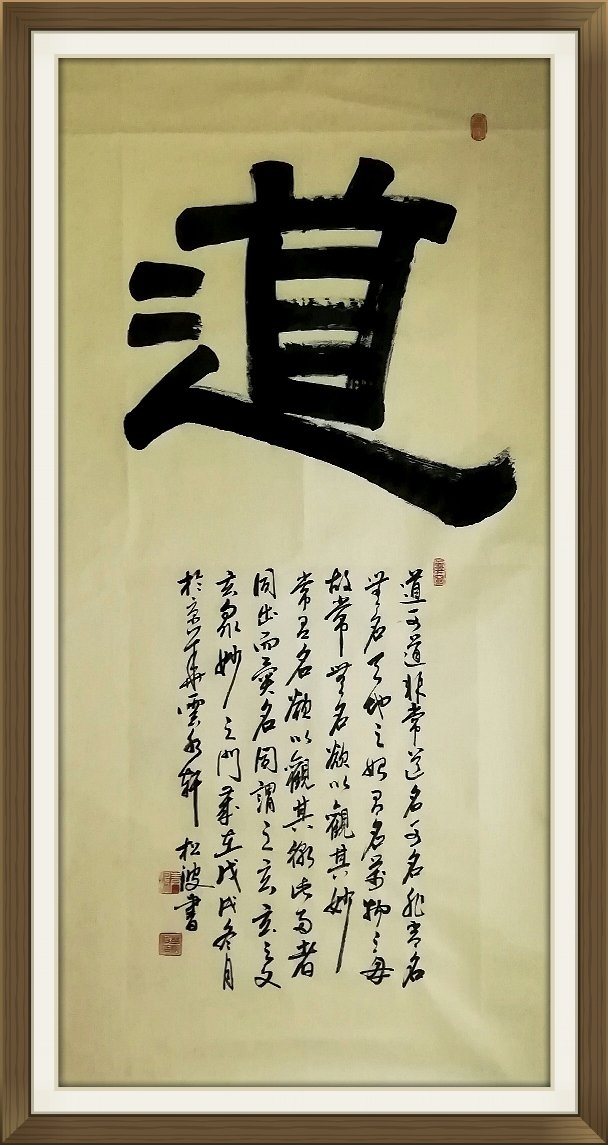 道
道可道非常道名可名非常名
無名天地之始有名萬物之母
故常無名欲以觀其妙
常有名欲以觀其徼此兩者
同出而異名同謂之玄玄之又
玄眾妙之門歲在戊戌冬月
於京華雲水軒 松波書